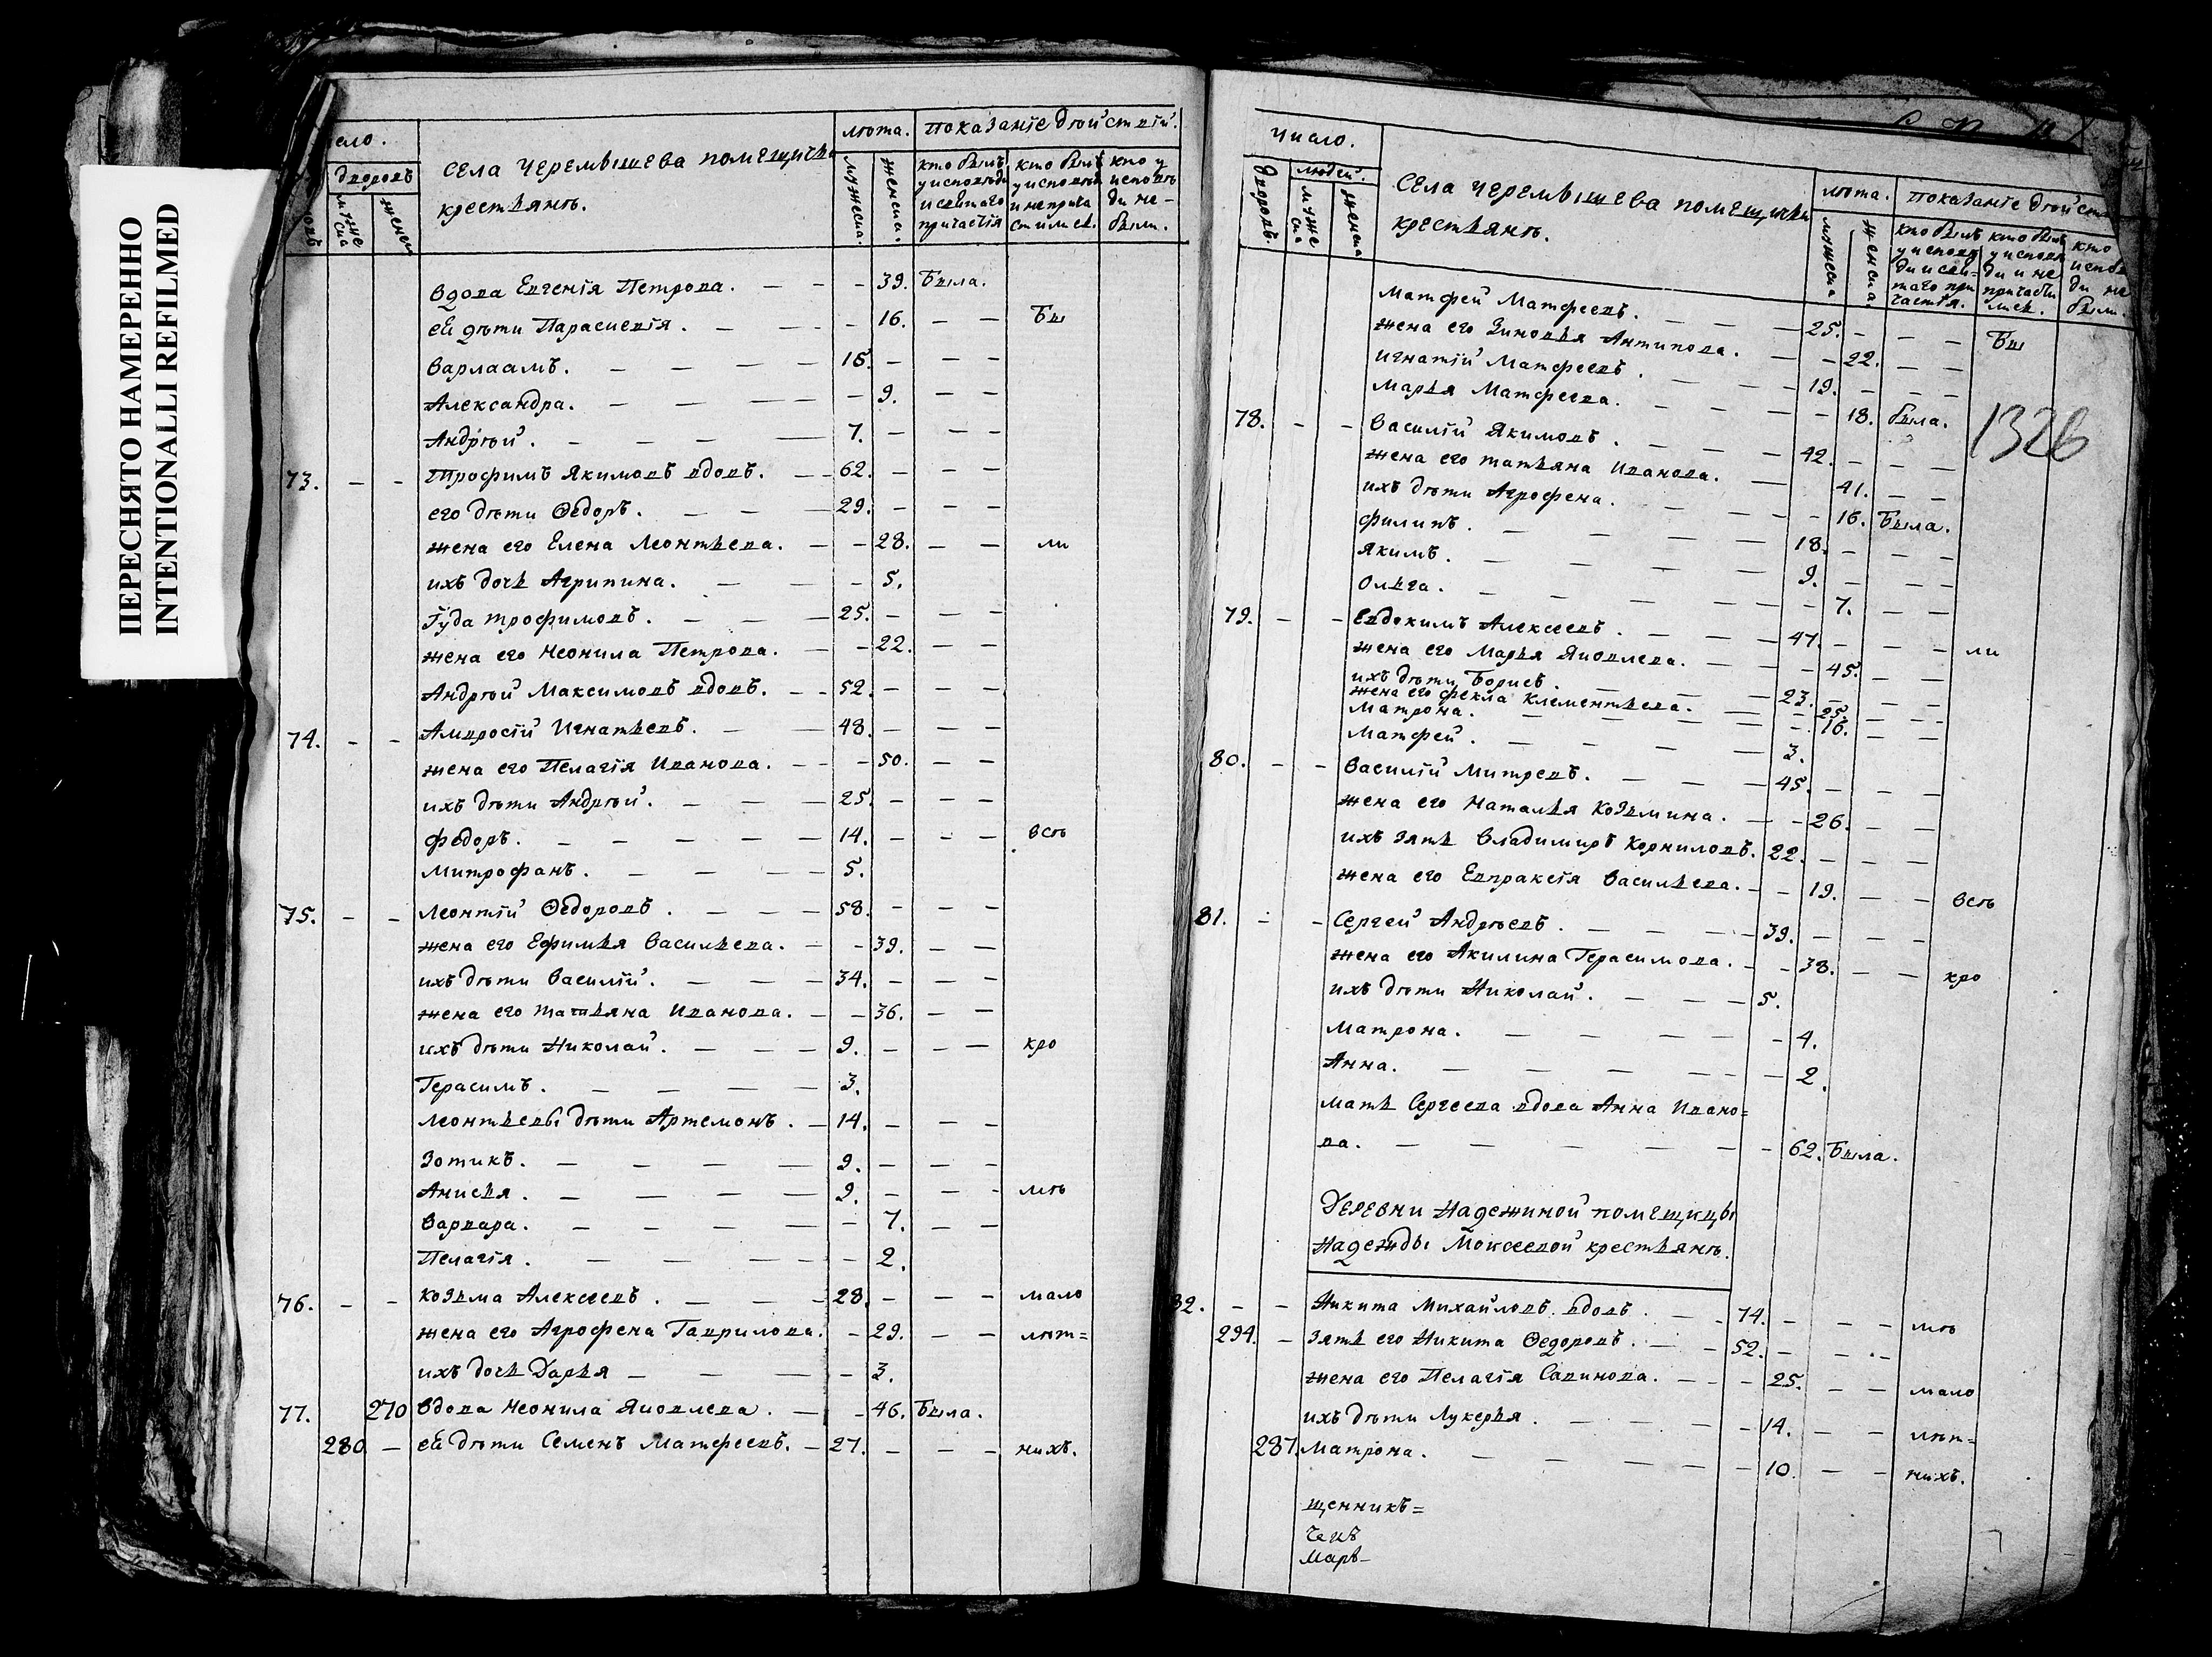 ПЕРЕСНЯТО НАМЕРЕННО
INTENTIONALLI REFILMED
ело.
села черемышева помещичьи
крестьянъ.
лѣта. показанїе дѣйствїй.
дворовъ
мужеска
женска
мужеска.
женска.
кто былъ у исповѣди и святаго причастїя
кто былъ у исповѣди и не прича стилсѧ.
кто у исповѣ ди не- былъ.
вдова Евгенїя Петрова. — — - 39. Была.
ей дѣти Параскевїя. — — - 16. — — Бы
Варлаамъ. — — — — 15. — — —
Александра. — — — - 9. — —
Андрѣй. — — — — 7. — — —
73. - - Трофимъ Якимовъ вдовъ. — - 62. — — —
его дѣти Ѳедоръ. — — — 29. — — —
жена его Елена Леонтьева. — - 28. — — ли
ихъ дочь Агрипина. — — - 5.
Гуда трофимовъ. — — — 25. — — —
жена его Неонила Петрова. — - 22. — —
Андрѣй Максимовъ вдовъ. - - 52. — — —
74. - - Амвросїй Игнатьевъ. — — 48. — — —
жена его Пелагїя Иванова. — - 50. — —
ихъ дѣти Андрѣй. — — — 25. — — —
федоръ. — — — — 14. — — — всѣ
Митрофанъ. — — — 5.
75. - - Леонтїй Ѳедоровъ. — — — 58. — — —
жена его Ефимья Васильева. — - 39. — —
ихъ дѣти Василїй. — — — 34. — — —
жена его татьяна Иванова. — - 36. — —
ихъ дѣти Николай. — — — 9. — — — кро
Герасимъ. — — — — 3.
Леонтьевы дѣти Артемонъ. — 14. — — —
Зотикъ. — — — — 9. — — —
Анисья. — — — — 9. — — - мѣ
Варвара. — — — — - 7. — —
Пелагїя. — — — — - 2.
76. - - козьма Алексеевъ. — — — 28. — — — мало
жена его Агрофена Гаврилова. - 29. — — лѣт=
ихъ дочь Дарья — — — - 3.
77. 270 Вдова Неонила Яковлева. — - 46. Была.
280 — ей дѣти Семенъ Матфеевъ. — 27. — — — нихъ.
число.
Дворовъ.
людей.
мужеска
женска
села черемышева помещичьи
крестьянъ.
лѣта.
показанїе дѣйст
мужеска
женска.
кто былъ у исповѣ ди и свѧ= таго при частїя.
кто былъ у исповѣ ди и не причасти лсѧ.
кто исповѣ ди не былъ.
Матфей Матфеевъ. — — — 25. — — — Бы
жена его Зиновья Антипова. — - 22. — —
игнатїй Матфеевъ. — — — 19. — — —
Марья Матфеева. — — — - 18. была.
1326
78. - - Василїй Якимовъ. — — — 42. — — —
жена его татьяна Иванова. — 41. — —
ихъ дѣти Агрофена. — — - 16. Была.
филипъ. — — — — 18. — — —
якимъ. — — — — 9. — — —
Ольга. — — — — - 7. — —
79. - - Евдокимъ Алексеевъ. — — 47. — — — ли
жена его Марья Яковлева. — — - 45. — —
ихъ дѣти Борисъ. — — — 23. — — —
жена его фекла Клементьева. — - 25. — —
Матрона. — — — — - 16. — —
Матфей. — — — — 3.
80. - - Василїй Митревъ. — — — 45. — — —
жена его Наталья Козьмина. — - 26. — —
ихъ зять Владимиръ Корниловъ. 22. — — —
жена его Евпраксїя Васильева. - - 19. — — всѣ
81. - - Сергей Андрѣевъ. — — — 39. — — —
жена его Акилина Герасимова. - - 38. — — кро
ихъ дѣти Николай. — — — 5.
Матрона. — — — — - 4.
Анна. — — — — - 2.
Мать Сергеева вдова Анна Ивано=
ва. — — — — — - 62. Была.
Деревни Надежиной помещицы
Надежды Моисеевой крестьянъ.
82. - - Никита Михайловъ вдовъ. — - 74. — — — мѣ
294. — Зять его Никита Ѳедоровъ. — - 52. — — —
жена его Пелагїя Савинова. — - 25. — — мало
ихъ дѣти Лукерья. — — — - 14. — — лѣт=
287. Матрона. — — — — - 10. — — нихъ.
щенникъ=
Марѳ-